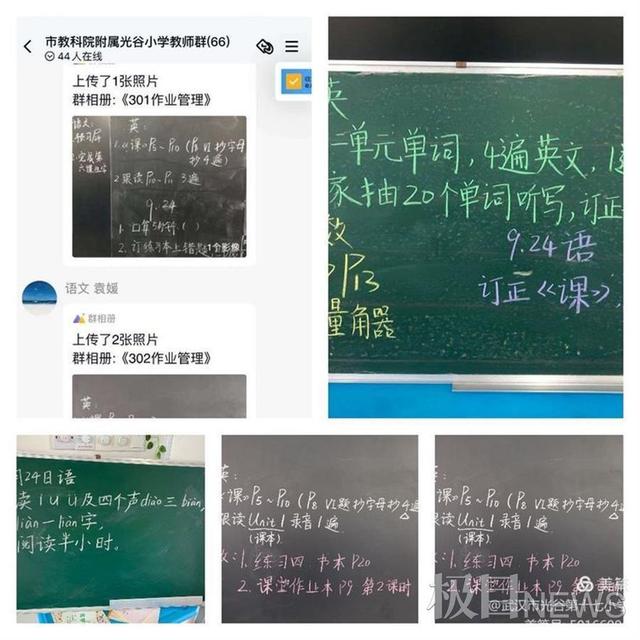 市教科院附属光谷小学教师群(66)
44人在线
上传了1张照片
群相册:《301作业管理》
语文:
英:
1.《课》P5~P10 (P8 VI 抄字母
抄4遍)
2 跟读P10~P11 3遍
9.24
1. 口算5分钟.( )
2. 订练习本上错题
1个影像
语文 袁媛
群相册
上传了2张照片
群相册:《302作业管理》
英:
英
二单元单词,4遍英文,1
家抽20个单词听写,订正
数
P13
量角器
9.24 语
订正《课》,
月24日语
读 i u ü 及四个声diào 三 biàn,
liàn一liàn字,
阅读半小时。
英:
《课》P5~P10 (P8 VI题抄字母抄4遍
跟读Unit 1 录音1遍
(课本)
1. 练习四 书本P20
2. 课堂作业本P9 第2课时
英:
《课》P5~P10 (P8 VI题抄字母抄4遍
跟读Unit 1 录音1遍
(课本)
1. 练习四 书本P20
2. 课堂作业本P9 第2课时
美篇
@武汉市光谷第十七小学
极目NEWS